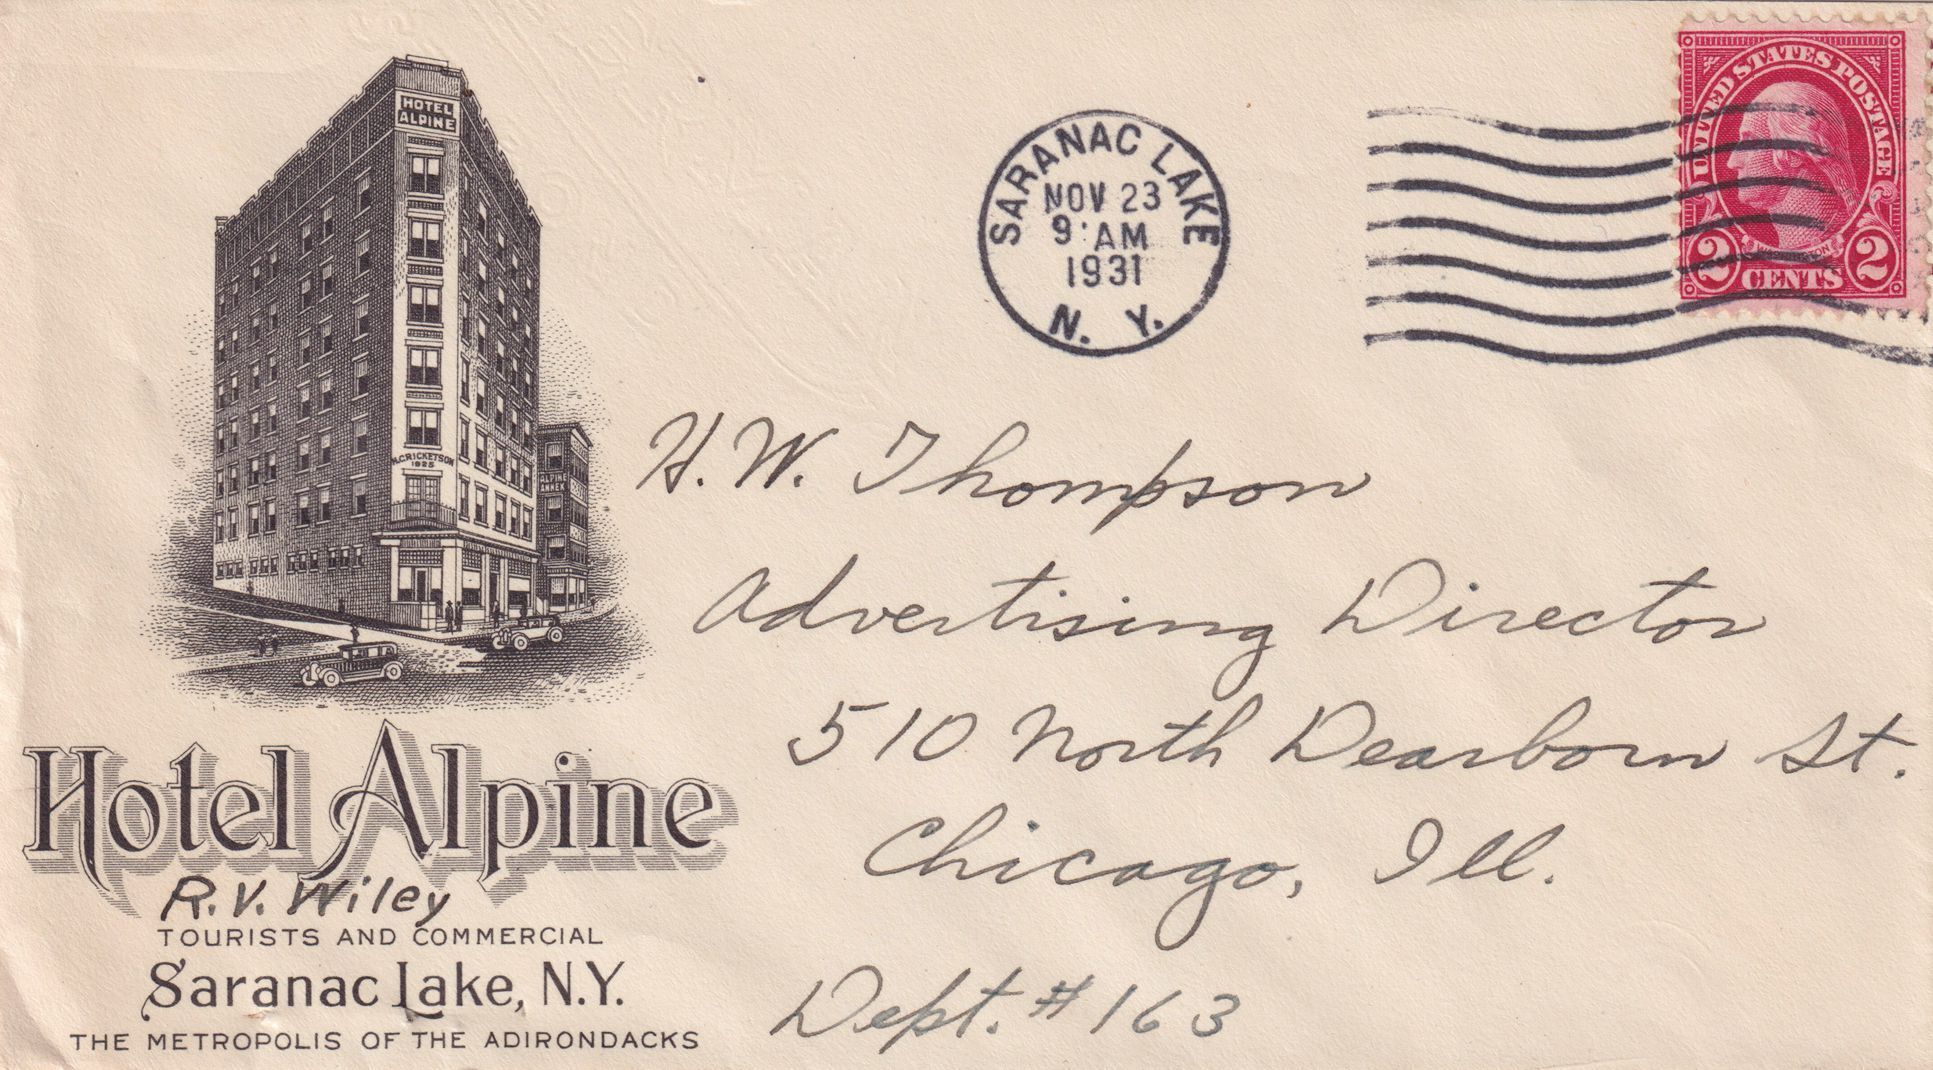 HOTEL
ALPINE
H.C.RICKETSON
1925
ALPINE
ANNEX
Hotel Alpine
R.V. Wiley
TOURISTS AND COMMERCIAL
Saranac Lake, N.Y.
THE METROPOLIS OF THE ADIRONDACKS
SARANAC LAKE
NOV 23
9 AM
1931
N. Y.
UNITED STATES POSTAGE
WASHINGTON
2 CENTS 2
H. W. Thompson
Advertising Director
510 North Dearborn St.
Chicago, Ill.
Dept. # 163